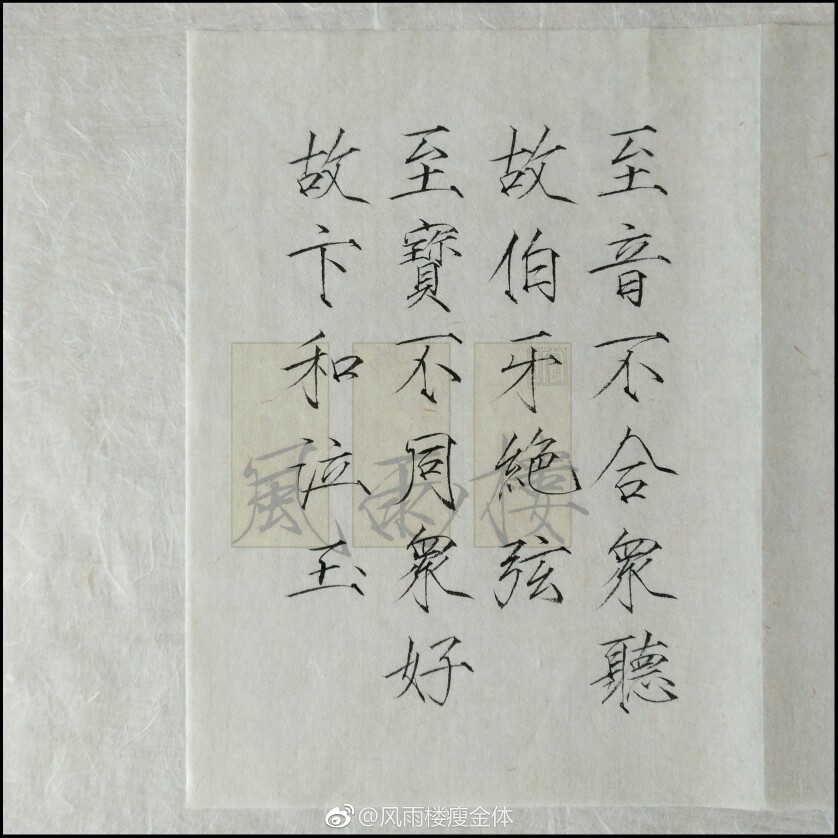 至音不合衆聽
故伯牙絕弦
至寶不同衆好
故卞和泣玉
風雨樓
@风雨楼瘦金体